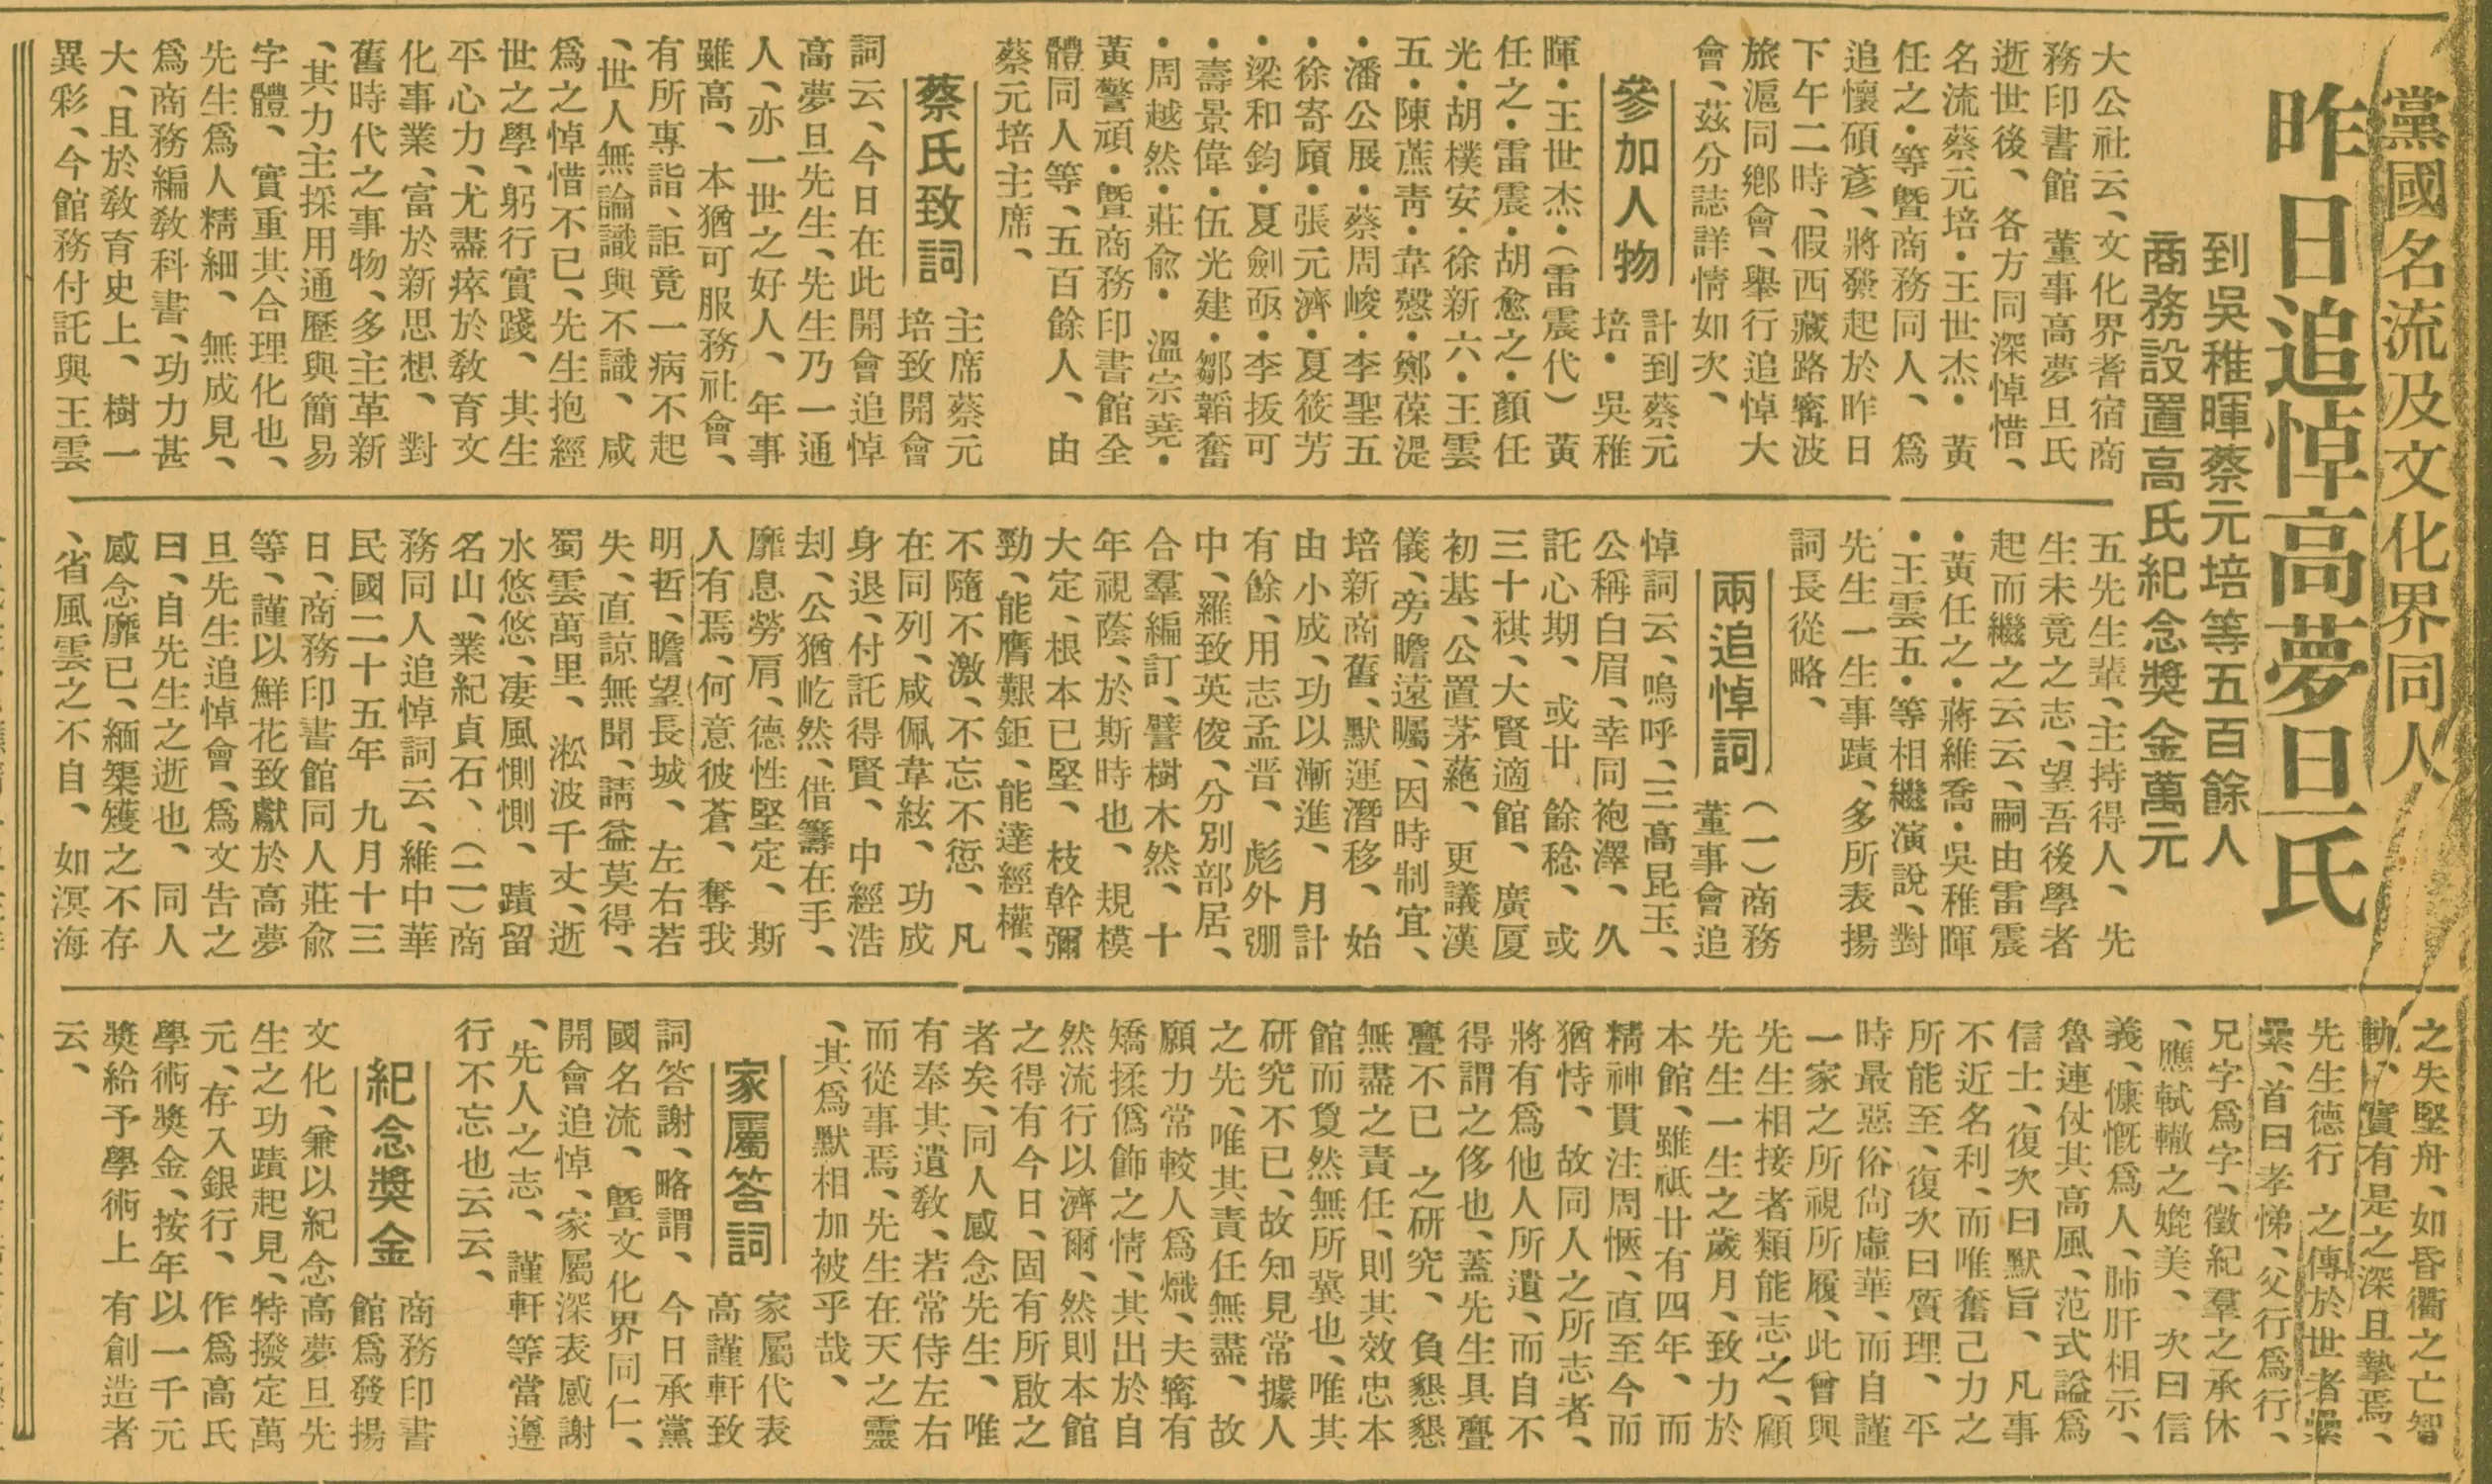 黨國名流及文化界同人
昨日追悼高夢旦氏
到吳稚暉蔡元培等五百餘人
商務設置高氏紀念獎金萬元
大公社云、文化界耆宿商
務印書館 董事高夢旦氏
逝世後、各方同深悼惜、
名流蔡元培・王世杰・黃
任之・等暨商務同人、爲
追懷碩彥、將發起於昨日
下午二時、假西藏路寗波
旅滬同鄕會、舉行追悼大
會、茲分誌詳情如次、
參加人物
計到蔡元
培・吳稚
暉・王世杰・(雷震代)黃
任之・雷震・胡愈之・顏任
光・胡樸安・徐新六・王雲
五・陳蔗靑・韋慤・鄭葆湜
・潘公展・蔡周峻・李聖五
・徐寄廎・張元濟・夏筱芳
・梁和鈞・夏劍丞・李拔可
・壽景偉・伍光建・鄒韜奮
・周越然・莊兪・溫宗堯・
黃警頑・曁商務印書館全
體同人等、五百餘人、由
蔡元培主席、
蔡氏致詞
主席蔡元
培致開會
詞云、今日在此開會追悼
高夢旦先生、先生乃一通
人、亦一世之好人、年事
雖高、本猶可服務社會、
有所專詣、詎竟一病不起
、世人無論識與不識、咸
爲之悼惜不已、先生抱經
世之學、躬行實踐、其生
平心力、尤盡瘁於敎育文
化事業、富於新思想、對
舊時代之事物、多主革新
、其力主採用通曆與簡易
字體、實重其合理化也、
先生爲人精細、無成見、
爲商務編敎科書、功力甚
大、且於敎育史上、樹一
異彩、今館務付託與王雲
五先生輩、主持得人、先
生未竟之志、望吾後學者
起而繼之云云、嗣由雷震
・黃任之・蔣維喬・吳稚暉
・王雲五・等相繼演說、對
先生一生事蹟、多所表揚
詞長從略、
兩追悼詞
(一)商務
董事會追
悼詞云、嗚呼、三高昆玉、
公稱白眉、幸同袍澤、久
託心期、或廿 餘稔、或
三十祺、大賢適館、廣厦
初基、公置茅蕝、更議漢
儀、旁瞻遠矚、因時制宜、
培新商舊、默運潛移、始
由小成、功以漸進、月計
有餘、用志孟晋、彪外弸
中、羅致英俊、分別部居、
合羣編訂、譬樹木然、十
年視蔭、於斯時也、規模
大定、根本已堅、枝幹彌
勁、能膺艱鉅、能達經權、
不隨不激、不忘不愆、凡
在同列、咸佩韋絃、功成
身退、付託得賢、中經浩
刦、公猶屹然、借籌在手、
靡息勞肩、德性堅定、斯
人有焉、何意彼蒼、奪我
明哲、瞻望長城、左右若
失、直諒無聞、請益莫得、
蜀雲萬里、淞波千丈、逝
水悠悠、凄風惻惻、蹟留
名山、業紀貞石、(二)商
務同人追悼詞云、維中華
民國二十五年 九月十三
日、商務印書館同人莊兪
等、謹以鮮花致獻於高夢
旦先生追悼會、爲文告之
曰、自先生之逝也、同人
感念靡已、緬榘矱之不存
、省風雲之不自、如溟海
之失堅舟、如昏衢之亡智
軌、實有是之深且摯焉、
先生德行 之傳於世者
、首曰孝悌、父行爲行、
兄字爲字、徵紀羣之承休
、應軾轍之媲美、次曰信
義、慷慨爲人、肺肝相示、
魯連仗其高風、范式謚爲
信士、復次曰默旨、凡事
不近名利、而唯奮己力之
所能至、復次曰質理、平
時最惡俗尙虛華、而自謹
一家之所視所履、此曾與
先生相接者類能志之、顧
先生一生之歲月、致力於
本館、雖祇廿有四年、而
精神貫注周愜、直至今而
猶恃、故同人之所志者、
將有爲他人所遺、而自不
得謂之侈也、蓋先生具亹
亹不已 之研究、負懇懇
無盡之責任、則其效忠本
館而夐然無所冀也、唯其
研究不已、故知見常據人
之先、唯其責任無盡、故
願力常較人爲熾、夫寗有
矯揉僞飾之情、其出於自
然流行以濟爾、然則本館
之得有今日、固有所啟之
者矣、同人感念先生、唯
有奉其遺敎、若常侍左右
而從事焉、先生在天之靈
、其爲默相加被乎哉、
家屬答詞
家屬代表
高謹軒致
詞答謝、略謂、今日承黨
國名流、曁文化界同仁、
開會追悼、家屬深表感謝
、先人之志、謹軒等當遵
行不忘也云云、
紀念獎金
商務印書
館爲發揚
文化、兼以紀念高夢旦先
生之功蹟起見、特撥定萬
元、存入銀行、作爲高氏
學術獎金、按年以一千元
獎給予學術上 有創造者
云、